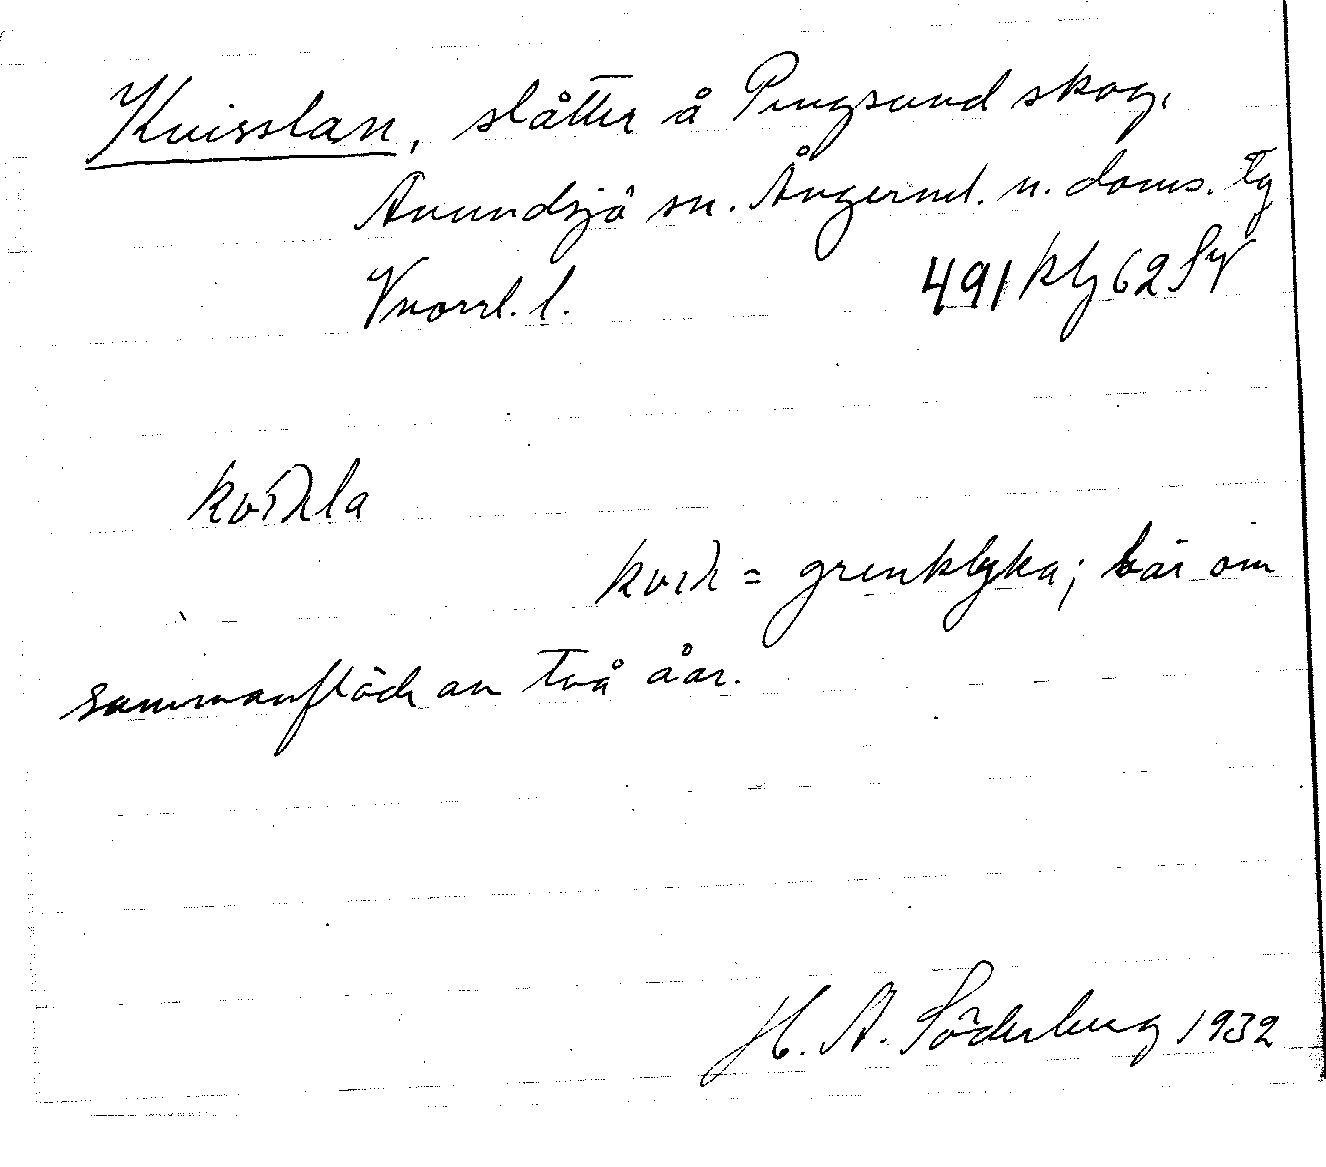 Kvisslan, slåtter å Pengsund skog,
Anundsjö sn. Ångerml. n. doms. tg
Vnorrl. l. 491 klg 62 Sy
kvıʜla
kvıʜ = grenklyka; här om
sammanflöde av två åar.
H. A. Söderberg 1932